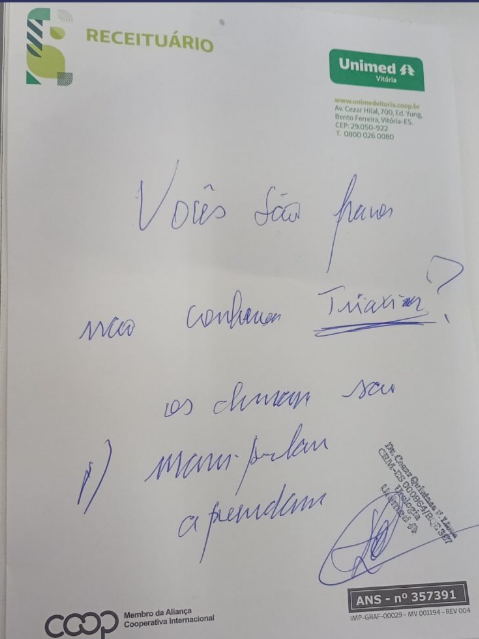 RECEITUÁRIO
Unimed
Vitória
www.unimedvitoria.coop.br
Av. Cezar Hilal, 700, Ed. Yung,
Bento Ferreira, Vitória-ES.
CEP: 29.050-922
T. 0800 026 0080
Vocês são fracos
não conhecem Triaxin?
os chineses sao
p/ manipular
aprendam
Urologia
Unimed
ANS - nº 357391
IMP-GRAF-00029 - MV 001194 - REV 004
coop
Membro da Aliança
Cooperativa Internacional